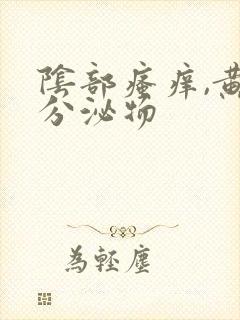 陰部瘙癢,黃
分泌物
為輕塵